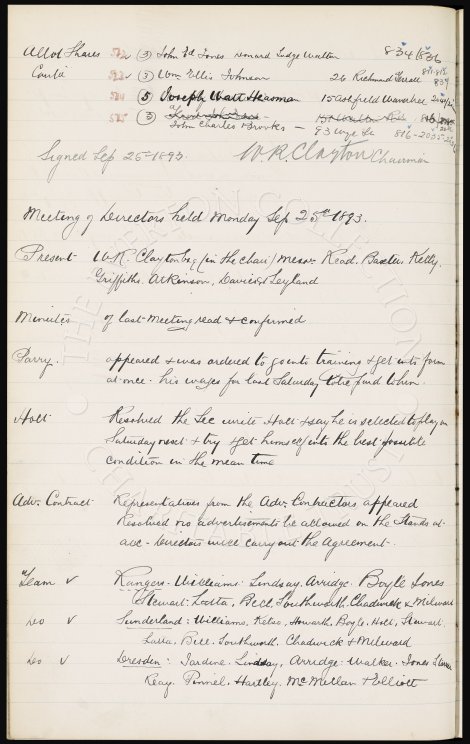 Allot Shares 522 (3) John Ed Jones Leonard Lodge Walton 834/836
Contd 523 (3) Wm Ellis Johnson 26 Richmond Terrace 837-839
524 (5) Joseph Watt Hearman 15 Ashfield Wavertree
525 (3)
John Charles Brooks — 93 Wye St 816-2035-
Signed Sep 25-1893. W. R. Clayton Chairman
Meeting of Directors held Monday Sep 25th 1893.
Present W R. Clayton Esq (in the chair) Messrs Read. Baxter. Kelly.
Griffiths. Atkinson, Davies & Leyland
Minutes of last meeting read & confirmed
Parry. appeared & was ordered to go into training & get into form
at once. his wages for last Saturday to be paid to him.
Holt Resolved the Sec write Holt & say he is selected to play on
Saturday next & try & get himself into the best possible
condition in the mean time
Adv. Contract Representatives from the Adv. Contractors appeared
Resolved no advertisements be allowed on the Stands at
all - Directors will carry out the Agreement.
"Team v Rangers - Williams. Lindsay. Arridge. Boyle Jones
Stewart. Latta, Bell, Southworth, Chadwick & Milward
Do v Sunderland: Williams, Kelso, Howarth, Boyle, Holt, Stewart.
Latta. Bell. Southworth. Chadwick & Milward
Do v Dresden: Jardine. Lindsay, Arridge. Walker. Jones
Reay. Pinnel. Hartley. McMillan & Elliott